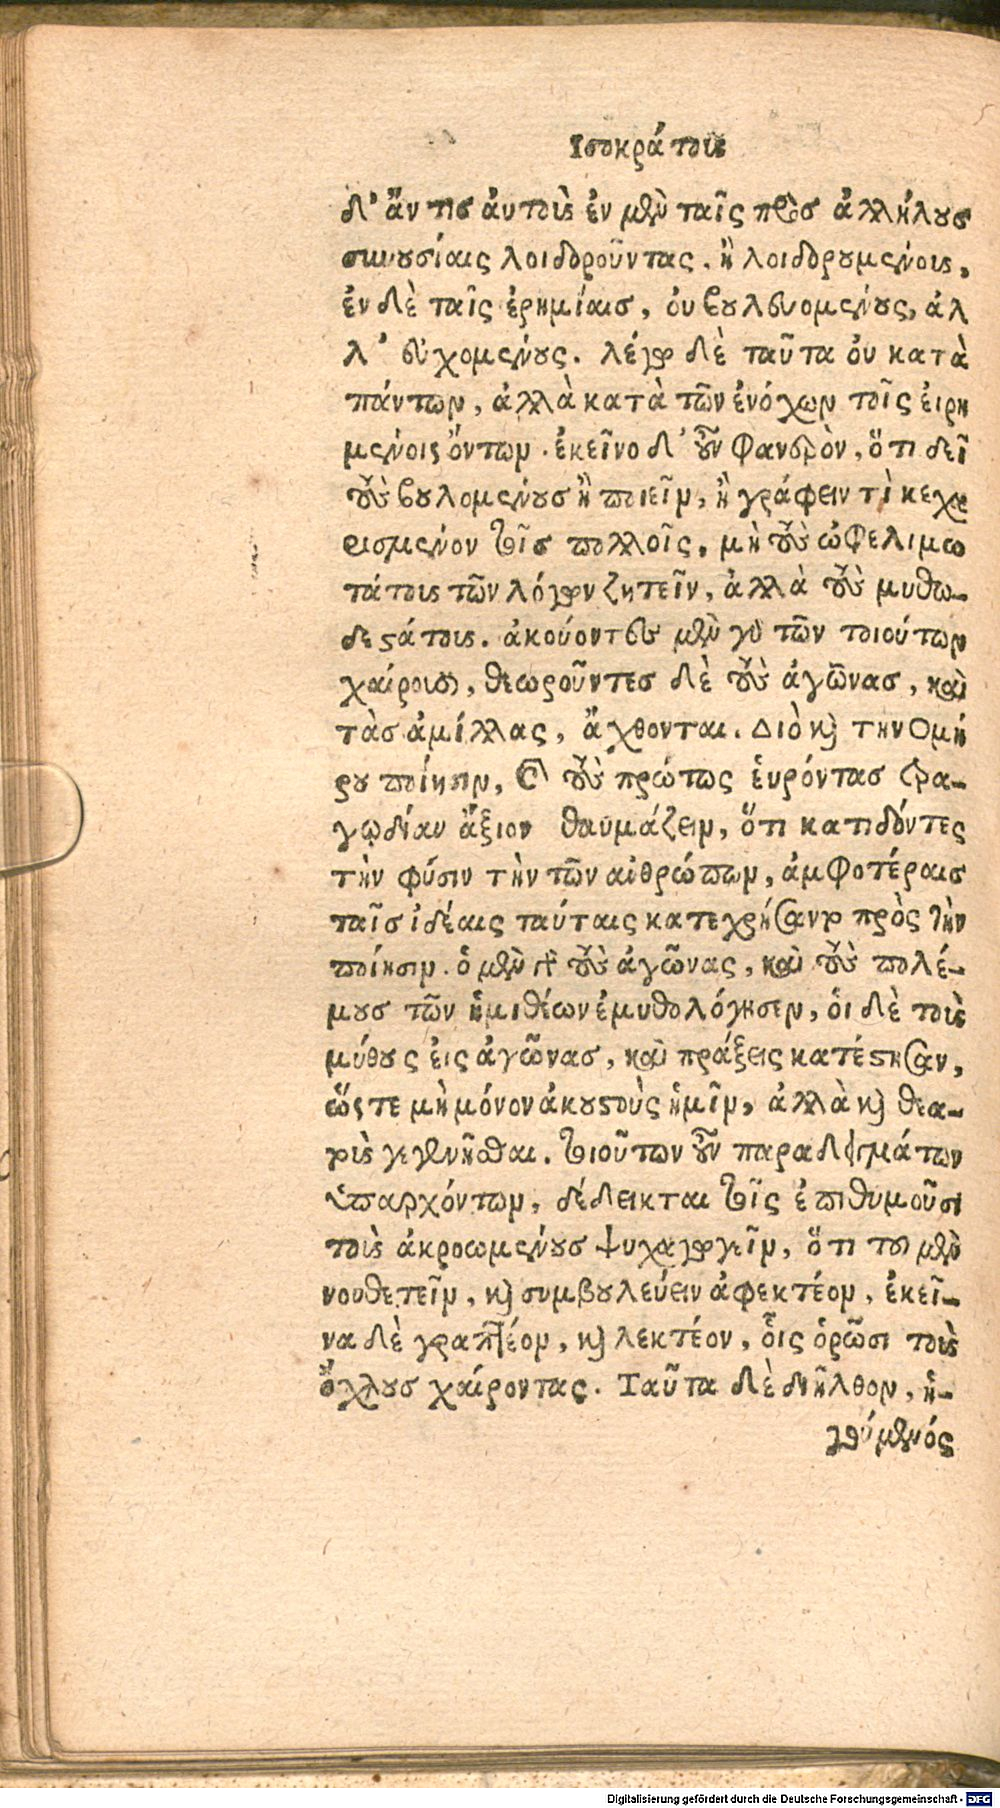 Ισοκράτους
δ' ἄν τις ἀυτοὺς ἐν μὲν ταῖς πρὸς ἀλλήλους
συνουσίαις λοιδοροῦντας, ἢ λοιδορουμένους,
ἐν δὲ ταῖς ἐρημίαις, ὀυ βουλευομένους, ἀλ
λ' ἐυχομένους. λέγω δὲ ταῦτα ὀυ κατὰ
πάντων, ἀλλὰ κατὰ τῶν ἐνόχων τοῖς ἐιρη
μένοις ὄντων. ἐκεῖνο δ' οὖν φανερὸν, ὅτι δεῖ
τοὺς βουλομένους ἢ ποιεῖν, ἢ γράφειν τὶ κεχα
ρισμένον τοῖς πολλοῖς, μὴ τοὺς ὠφελιμω
τάτους τῶν λόγων ζητεῖν, ἀλλὰ τοὺς μυθω-
δεστάτους. ἀκούοντες μὲν γὰρ τῶν τοιούτων
χαίρουσι, θεωροῦντες δὲ τοὺς ἀγῶνας, καὶ
τὰς ἁμίλλας, ἄχθονται. Διὸ καὶ την Ομή
ρου ποίησιν, καὶ τοὺς πρώτους ἑυρόντας τρα-
γῳδίαν ἄξιον θαυμάζειν, ὅτι κατιδόντες
τὴν φύσιν τὴν τῶν ἀνθρώπων, ἀμφοτέραις
ταῖς ἰδέαις ταύταις κατεχρήσαντο πρὸς τὴν
ποίησιν. ὁ μὲν γὰρ τοὺς ἀγῶνας, καὶ τοὺς πολέ-
μους τῶν ἡμιθέων ἐμυθολόγησεν, ὁι δὲ τοὺς
μύθους ἐις ἀγῶνας, καὶ πράξεις κατέστησαν,
ὥςτε μὴ μόνον ἀκουστοὺς ἡμῖν, ἀλλὰ καὶ θεα-
τοὺς γεγενῆσθαι. τοιούτων οὖν παραδειγμάτων
ὑπαρχόντων, δέδεικται τοῖς ἐπιθυμοῦσι
τοὺς ἀκροωμένους ψυχαγωγεῖν, ὅτι τοῦ μὲν
νουθετεῖν, καὶ συμβουλεύειν ἀφεκτέον, ἐκεῖ-
να δὲ γραπτέον, καὶ λεκτέον, οἷς ὁρῶσι τοὺς
ὄχλους χαίροντας. Ταῦτα δὲ διῆλθον, ἡ-
γούμενός
Digitalisierung gefördert durch die Deutsche Forschungsgemeinschaft - DFG